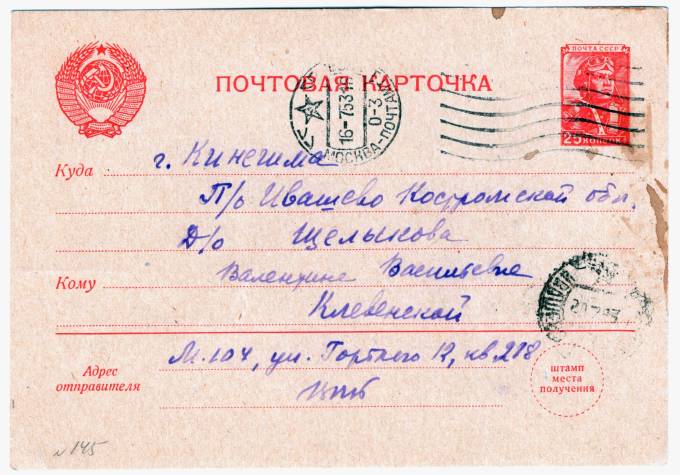 ПОЧТА СССР
ПОЧТОВАЯ КАРТОЧКА
16-7 53
0-3
МОСКВА-ПОЧТА
25 КОПЕЕК
Куда г. Кинешма
П/о Ивашево Костромской обл.
Д/о Щелыкова
Кому Валентине Васильевне
Клевенской
Адрес отправителя
М-104, ул. Горького 12, кв. 218
ЦПБ
штамп места получения
N 145